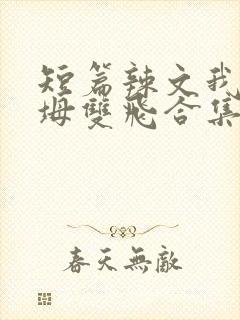 短篇辣文我
坶雙飛合集
春天無敵